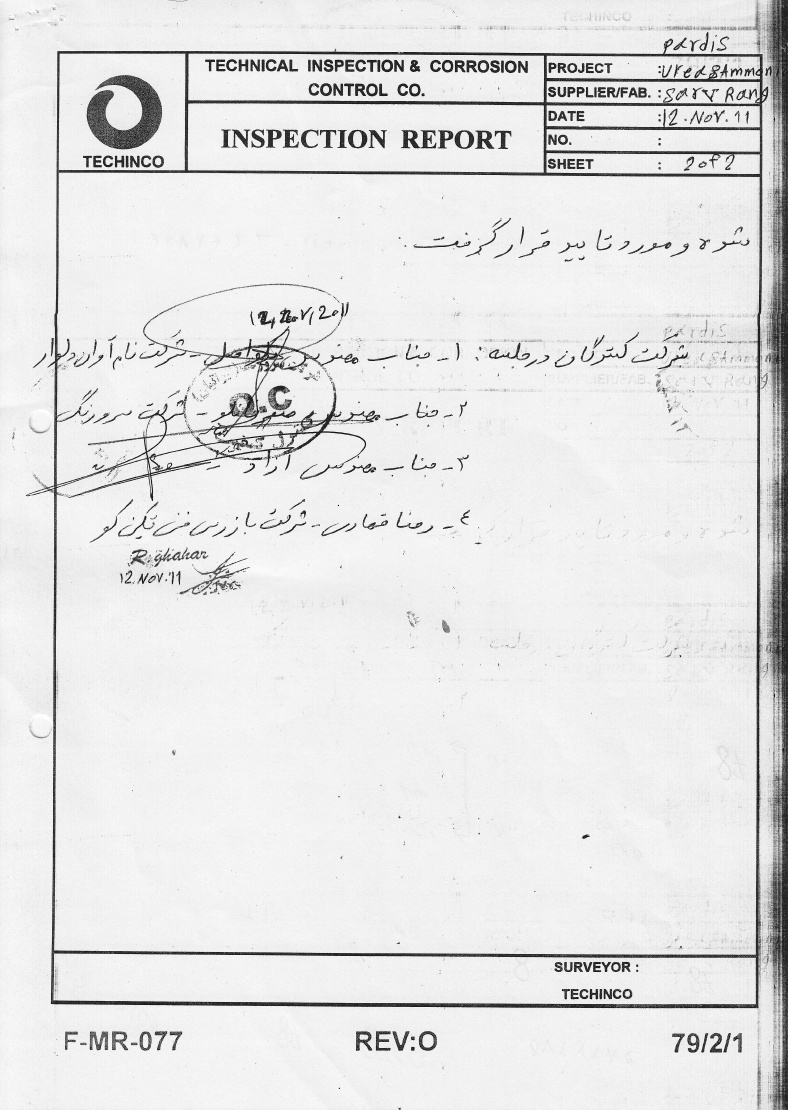 TECHINCO
TECHNICAL INSPECTION & CORROSION
CONTROL CO.
INSPECTION REPORT
pardis
PROJECT : Urea & Ammoni
SUPPLIER/FAB. : Sarv Rang
DATE : 12.Nov.11
NO. :
SHEET : 2 of 2
شده و مورد تایید قرار گرفت.
12, Nov, 2011
شرکت کنندگان در جلسه : ۱- جناب مهندس - شرکت نام آوران دلوار
۲- جناب مهندس - شرکت سرورنگ
۳- جناب مهندس آزاد
Q.C
٤- رضا قهاری - شرکت بازرسی فنی تکین کو
R. ghahar
12.NOV.'11
SURVEYOR :
TECHINCO
F-MR-077 REV:O 79/2/1